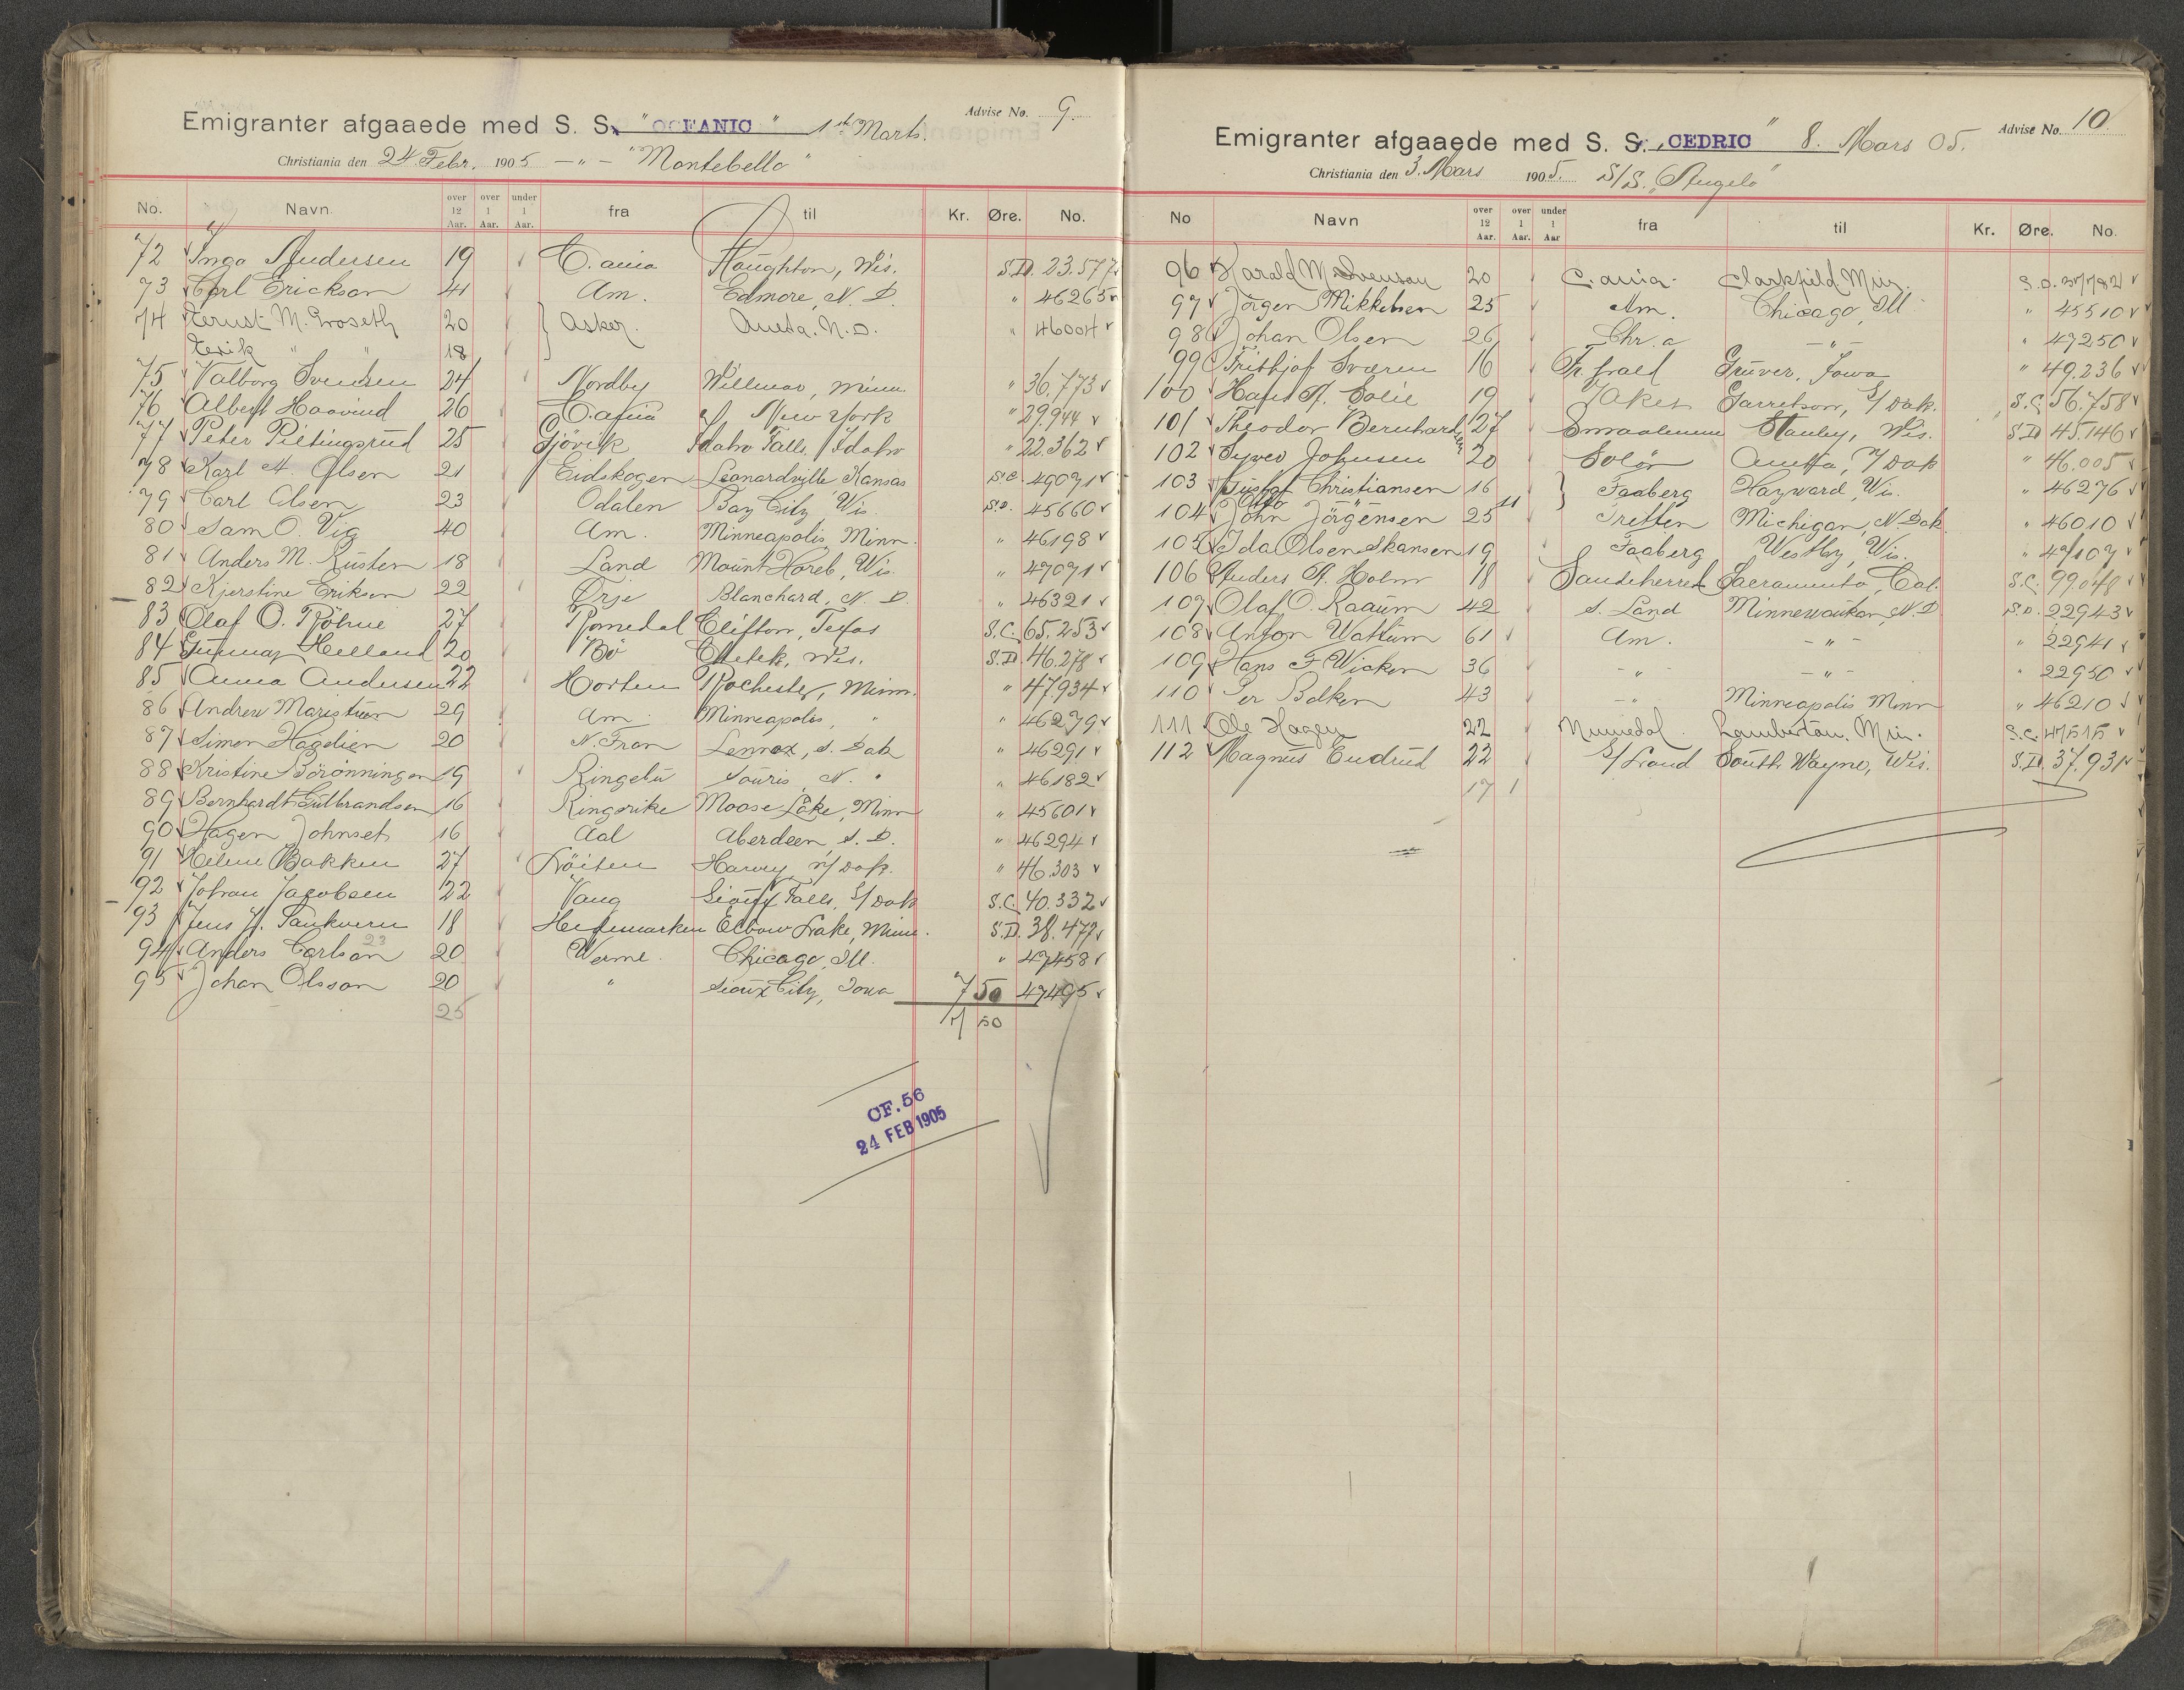 Advise No. 9.
Emigranter afgaaede med S. S. "OCEANIC" 1ste Marts.
Christiania den 24 Febr. 1905 — " — "Montebello"
No. Navn over 12 Aar. over 1 Aar. under 1 Aar. fra til Kr. Øre. No.
72 Inga Andersen 19 C.ania Houghton, Wis. S.D. 23.577
73 Carl Erickson 41 Am. Edmore, N. D. " 46265
74 Ernst M. Groseth 20 Asker. Aneta. N.D. " 46004
Erik " " 18
75 Valborg Svendsen 24 Nordby Willmar, Minn. " 36.773
76 Albert Haavind 26 C.ania New York " 29.944
77 Peter Pillingsrud 25 Gjövik Idaho Falls, Idaho " 22.362
78 Karl A. Olsen 21 Eidskogen Leonardville Kansas S.C. 49071
79 Carl Olsen 23 Odalen Bay City Wis. S.D. 45660
80 Sam O. Vig 40 Am. Minneapolis Minn. " 46198
81 Anders M. Rusten 18 Land Mount Horeb, Wis. " 47071
82 Kjerstine Eriksen 22 Ørje Blanchard, N. D. " 46321
83 Olaf O. Röhne 27 Romedal Clifton, Texas S.C. 65.253
84 Gunnar Helland 20 Bö Chetek, Wis. S.D. 46.278
85 Anna Andersen 22 Horten Rochester, Minn. " 47.934
86 Andrew Maristuen 29 Am. Minneapolis, " " 46279
87 Simon Hagelien 20 N. Fron Lennox, S. Dak " 46291
88 Kristine Börönningen 19 Ringebu Souris, N. " " 46182
89 Bernhardt Gulbrandsen 16 Ringerike Moose Lake, Minn " 45601
90 Hagen Johnset 16 Aal Aberdeen S. D. " 46294
91 Helene Bakken 27 Löiten Harvey, N/Dak. " 46.303
92 Johan Jacobsen 22 Vang Sioux Falls, S/Dak S.C. 40.332
93 Jens J. Sankvern 18 Hedemarken Elbow Lake, Minn. S.D. 38.477
94 Anders Carlson 20 Werml. Chicago, Ill. " 47458
95 Johan Olsson 20 " Sioux City, Iowa 7 50 47495
25 7 50
CF. 56
24 FEB 1905
Advise No. 10
Emigranter afgaaede med S. S. "CEDRIC" 8. Mars 05.
Christiania den 3. Mars 1905. S/S. "Angelo"
No Navn over 12 Aar. over 1 Aar. under 1 Aar fra til Kr. Øre. No.
96 Harald M. Svenson 20 C.ania Clarkfield Min. S.D. 37782
97 Jörgen Mikkelsen 25 Am. Chicago, Ill " 45510
98 Johan Olsen 26 Chr.a — " — " 47250
99 Frithjof Sværen 16 Fr.hald Gruver, Iowa " 49.236
100 Hans A. Solie 19 Aker Garretson, S/Dak. S.C. 56.758
101 Theodor Bernhardsen 27 Smaalenene Stanley, Wis. S.D 45.146
102 Syver Johnsen 20 Solör Anetta, N/Dak " 46.005
103 Gustaf Christiansen 16 Faaberg Hayward, Wis. " 46276
Otto " 11
104 John Jörgensen 25 Tretten Michigan, N. Dak " 46010
105 Ida Olsen Skansen 19 Faaberg Westby, Wis. " 47107
106 Anders A. Holm 18 Sandeherred Sacramento, Cal. S.C. 99.048
107 Olaf O. Raaum 42 S. Land Minnewaukan, N. D S.D. 22943
108 Anton Wattum 61 Am. — " — " 22941
109 Hans F Wicken 36 — " — — " — " 22950
110 Per Bakken 43 — " Minneapolis Minn " 46210
111 Ole Hagen 22 Numedal. Lamberton. Min. S.C. 47515
112 Magnus Endrud 22 S/Land South Wayne, Wis. S.D. 37.931
17 1